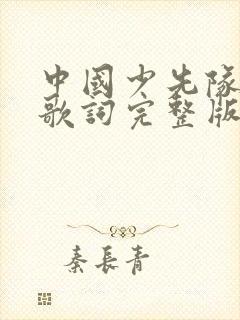 中國少先隊
歌詞完整版
秦長青